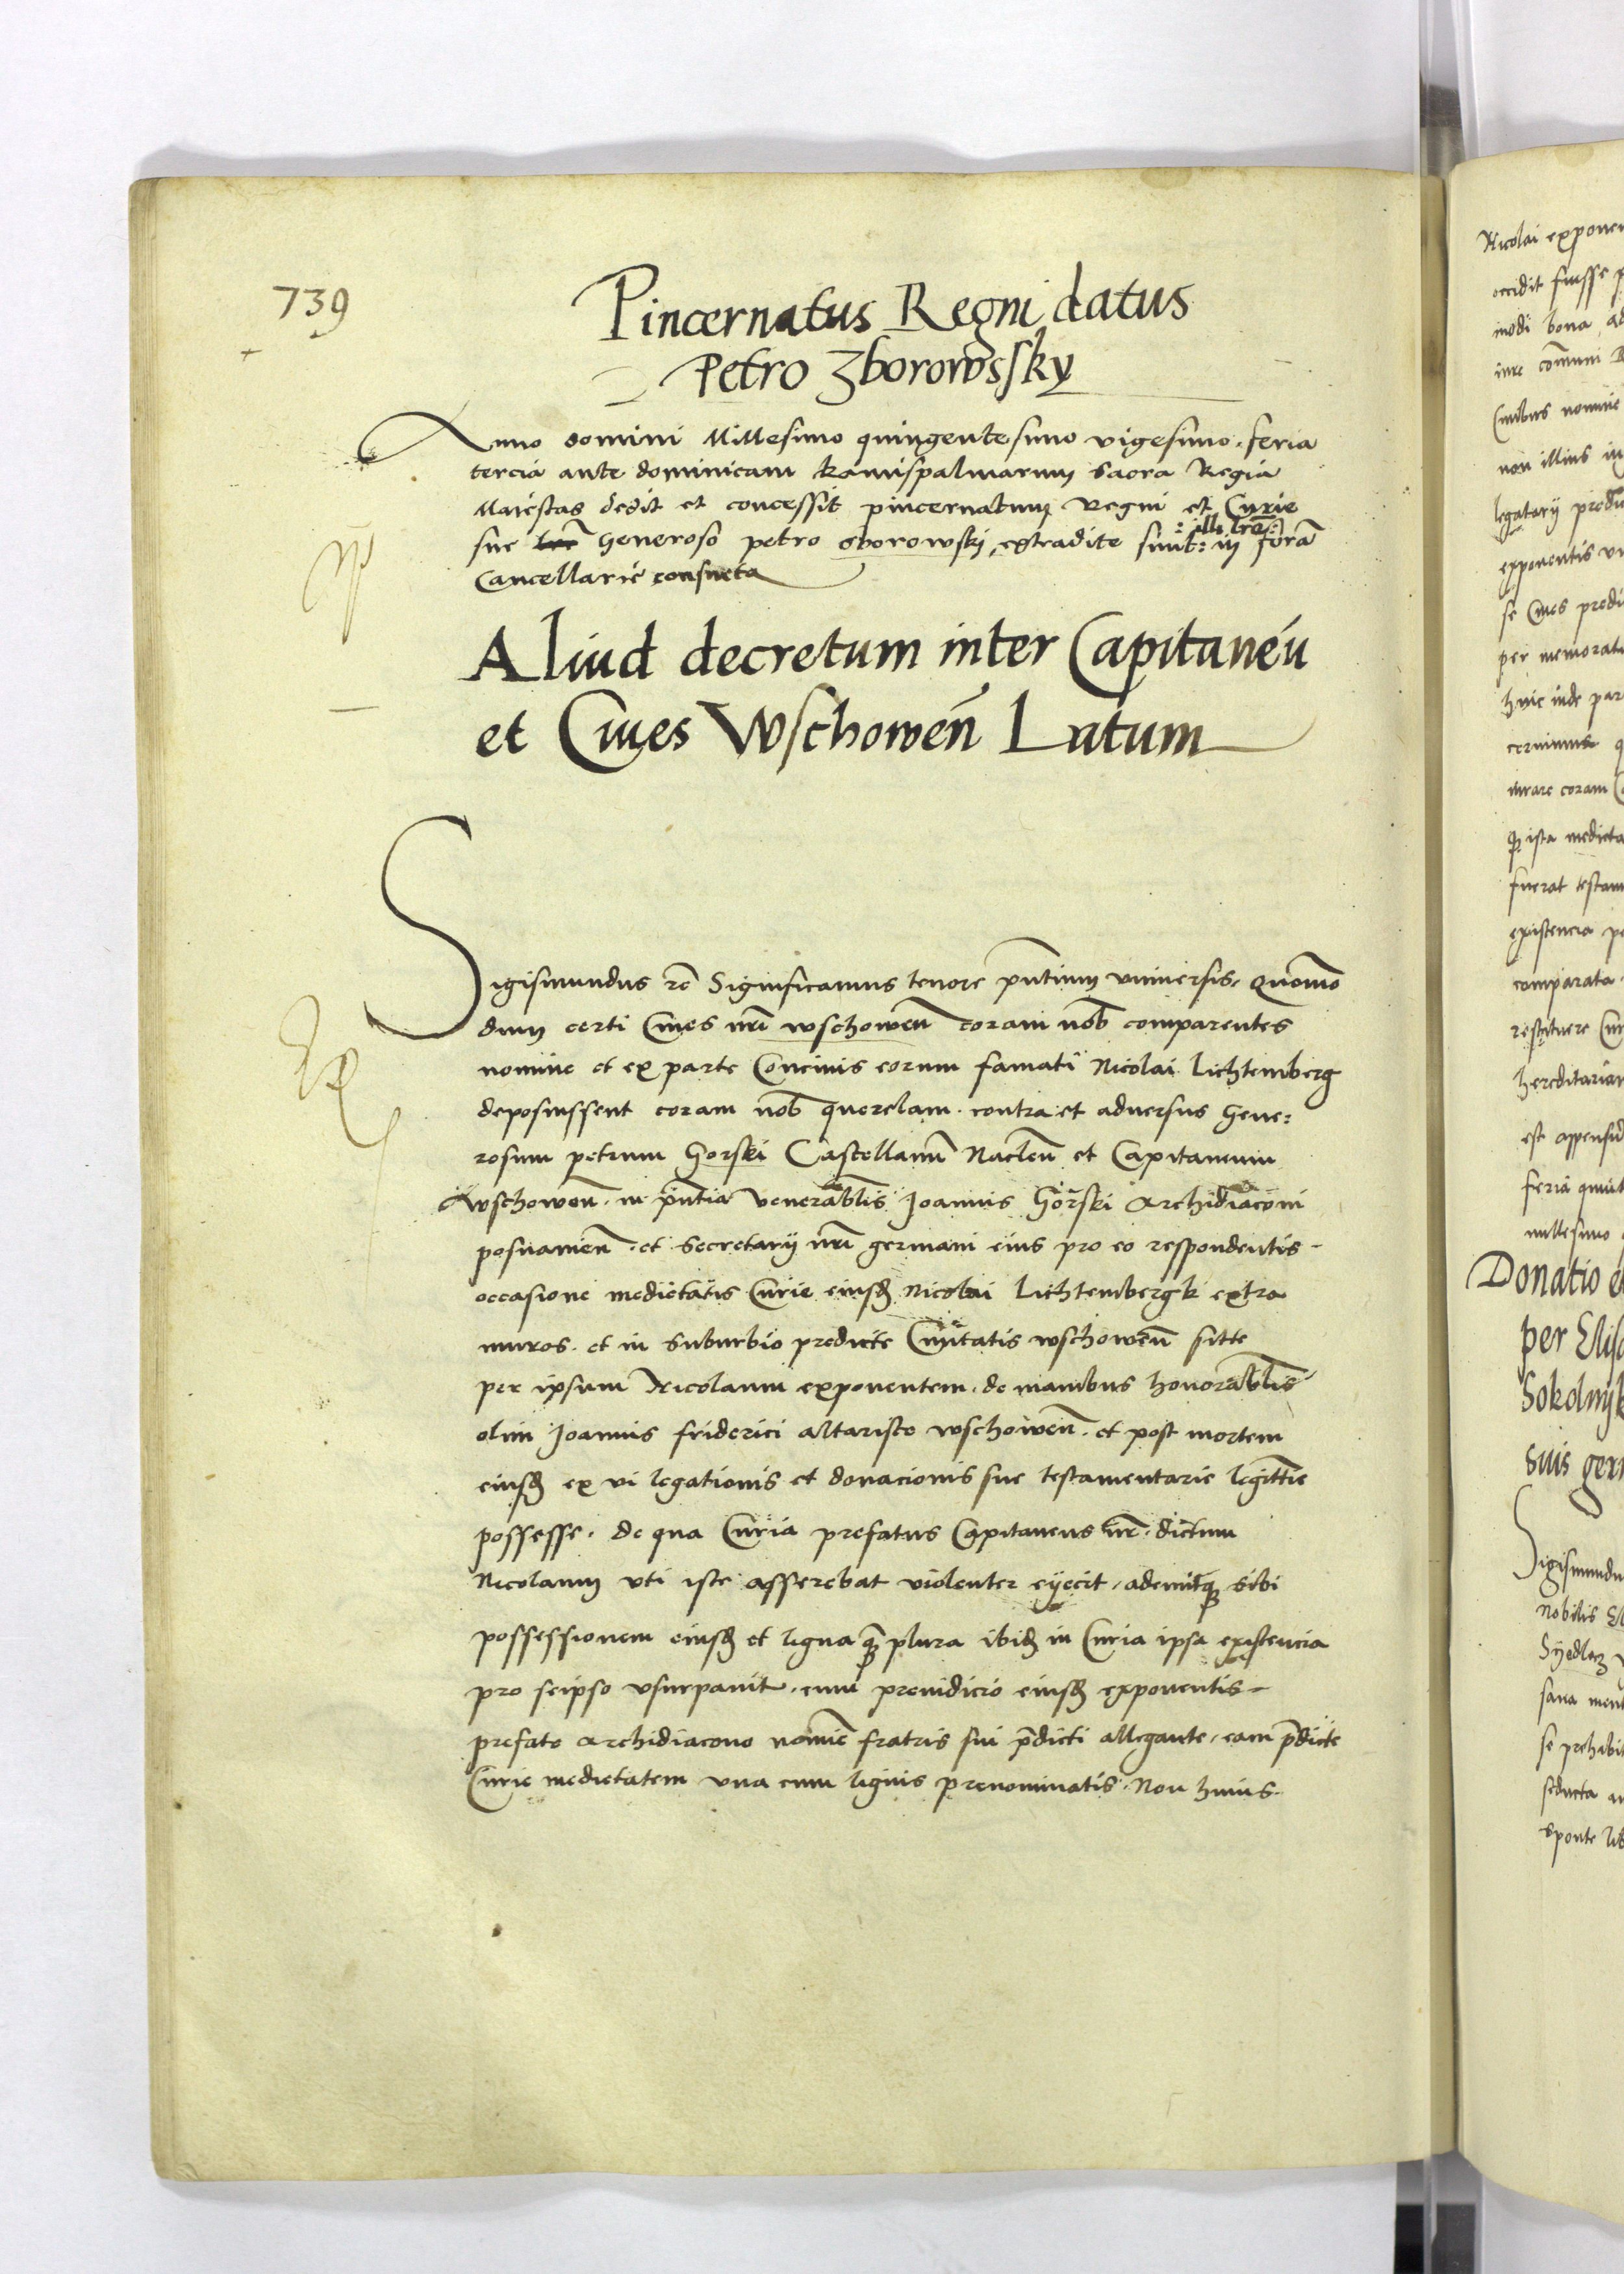 739
Pincernatus Regni datus
Petro Zborowssky
Anno domini Millesimo quingentesimo vigesimo. feria
tercia ante dominicam Ramispalmarum Sacra Regia
Maiestas dedit et concessit pincernatum Regni et Curie
: illi lrẽ :
sue Generoso petro sborowski, extradite sunt: in forã
Cancellarie consueta
Aliud decretum inter Capitaneũ
et Ciues Wschoweñ Latum
Sigismundus rc̃ Significamus tenore pñtium vniuersis. Quomõ
dum certi Ciues nr̃i wschoweñ coram nob̃ comparentes
nomine et ex parte Conciuis eorum famati Nicolai Lichtemberg
deposuissent coram nob̃ querelam. contra et aduersus Gene:
rosum petrum Gorski Castellanũ Nacleñ et Capitaneum
wschoweñ. in pñtia venerabl̃is Joannis Gorski Archidiaconi
posnanieñ. et Secretarij nr̃i germani eius pro eo respondentis.
occasione medietatis Curie eiusd̃ Nicolai Lichtembergk extra
muros. et in suburbio predicte Ciuitatis wschoweñ sitte
per ipsum Nicolaum exponentem. de manibus honorabl̃is
olim Joannis friderici altariste wschoweñ. et post mortem
eiusd̃ ex vi legationis et donacionis sue testamentarie legittĩe
possesse. de qua Curia prefatus Capitaneus nr̃. dictum
Nicolaum vti iste asserebat violenter eyecit, ademitq̃ sibi
possessionem eiusd̃ et ligna q̃ plura ibid̃ in Curia ipsa existencia
pro seipso vsurpauit. cum preiudicio eiusd̃ exponentis.
prefato Archidiacono nomĩe fratris sui p̃dicti allegante, eam p̃dicte
Curie medietatem vna cum lignis prenominatis. Non huius.
Nicolai exponen
occidit fuisse p
modi bona ad
iure com̃uni
Ciuibus nomine
non illius in
legatarij predic
exponentis
se Ciues predi
per memorat
huic inde par
cernimus q
iurare coram
ista medieta
fuerat testam
existencia pe
comparata
restituere Cur
hereditariam
est appensũ
feria quint
millesimo
Donatio
per Elis
Sokolnyk
suis ger
Sigismundu
Nobilis El
Syedlecz
sana ment
se prehibit
seducta
sponte lib